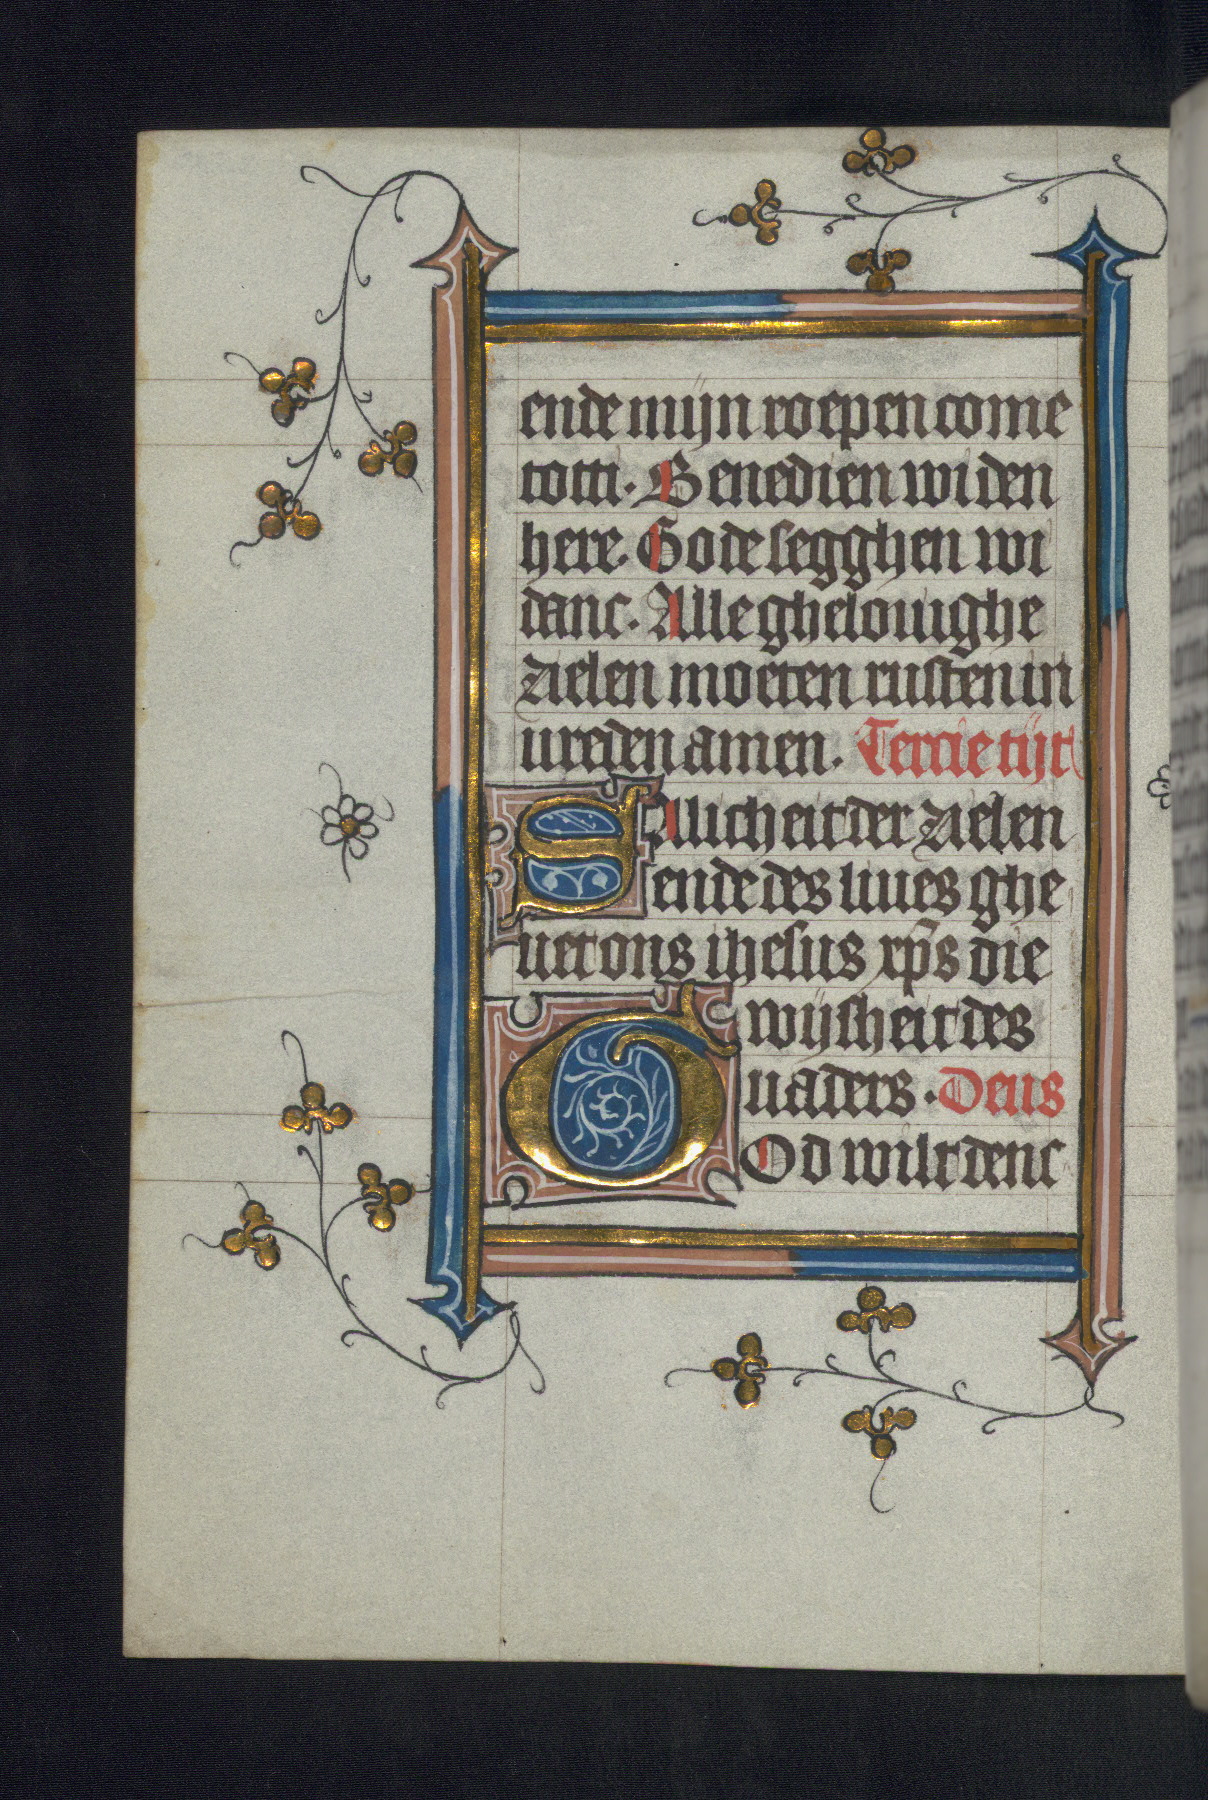 ende mijn roepen come
totti. Benedien wi den
here. Gode segghen wi
danc. Alle ghelouighe
zielen moeten rusten in
ureden amen. Tercie tijt
SAlicheit der zielen
ende des liues ghe
uet ons ihesus xp̄s die
wijsheit des
uaders. Deus
GOd wilt denc